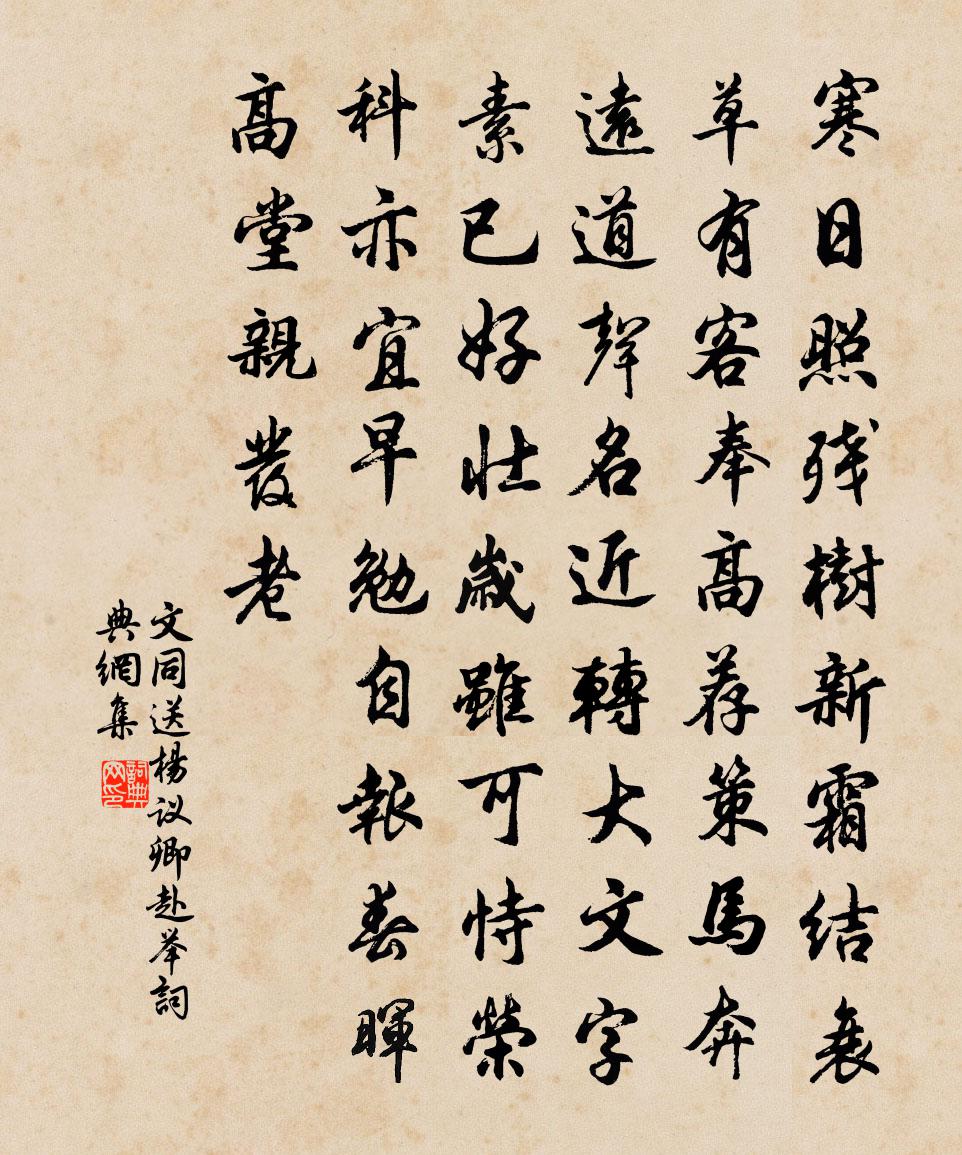 寒日照残樹新霜結衰
草有客奉高荐策馬奔
遠道聲名近轉大文字
素已好壮歲雖可恃榮
科亦宜早勉自報春暉
高堂親發老
文同送楊议卿赴举詞
典網集
詞典网印